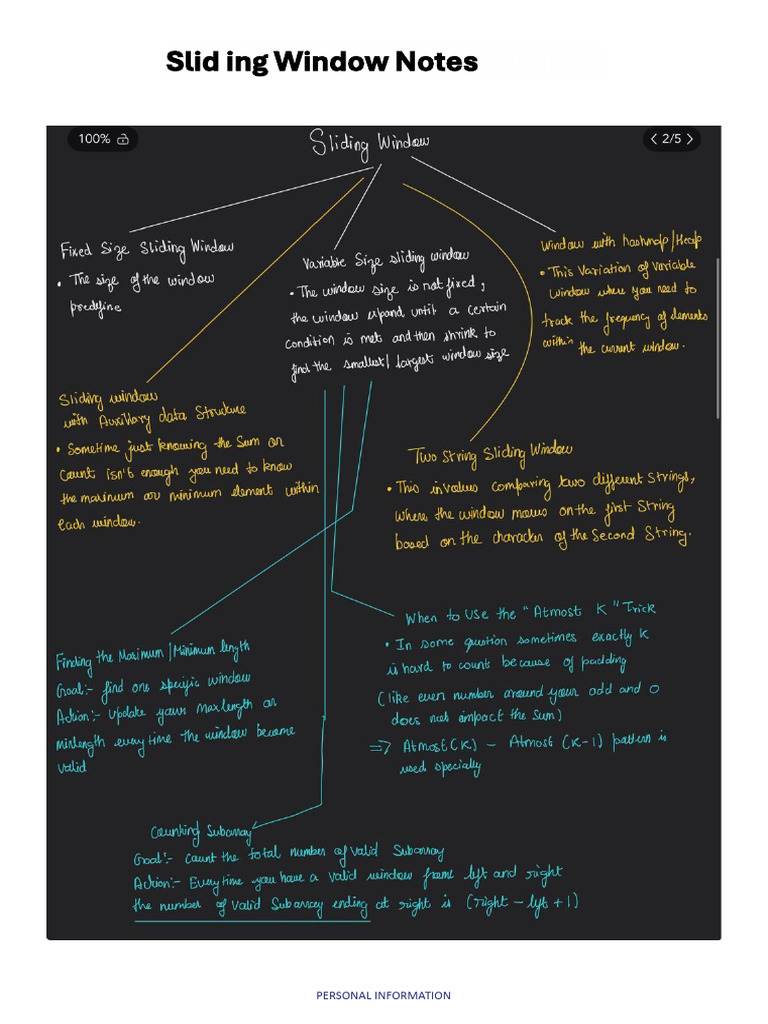 Slid ing Window Notes
100%
2/5
Sliding Window
Fixed Size Sliding Window
• The size of the window
predefine
Variable Size sliding window
• The window size is not fixed,
the window expand until a certain
condition is met and then shrink to
find the smallest/largest window size
Window with hashmap/Heap
• This Variation of Variable
window where you need to
track the frequency of elements
within the current window.
Sliding window
with Auxiliary data Structure
• Sometime just knowing the Sum or
Count isn't enough you need to know
the maximum or minimum element within
each window.
Two String Sliding Window
• This involves comparing two different Strings,
where the window moves on the first String
based on the character of the Second String.
Finding the Maximum/Minimum length
Goal:- find one specific window
Action:- Update your maxlength or
minlength every time the window become
valid
When to Use the "Atmost K" Trick
• In some question sometimes exactly K
is hard to count because of padding
(like even number around your odd and 0
does not impact the sum)
=> Atmost(K) - Atmost (K-1) pattern is
used specially
Counting Subarray
Goal:- Count the total number of valid Subarray
Action:- Everytime you have a valid window from left and right
the number of valid Subarray ending at right is (right - left + 1)
PERSONAL INFORMATION